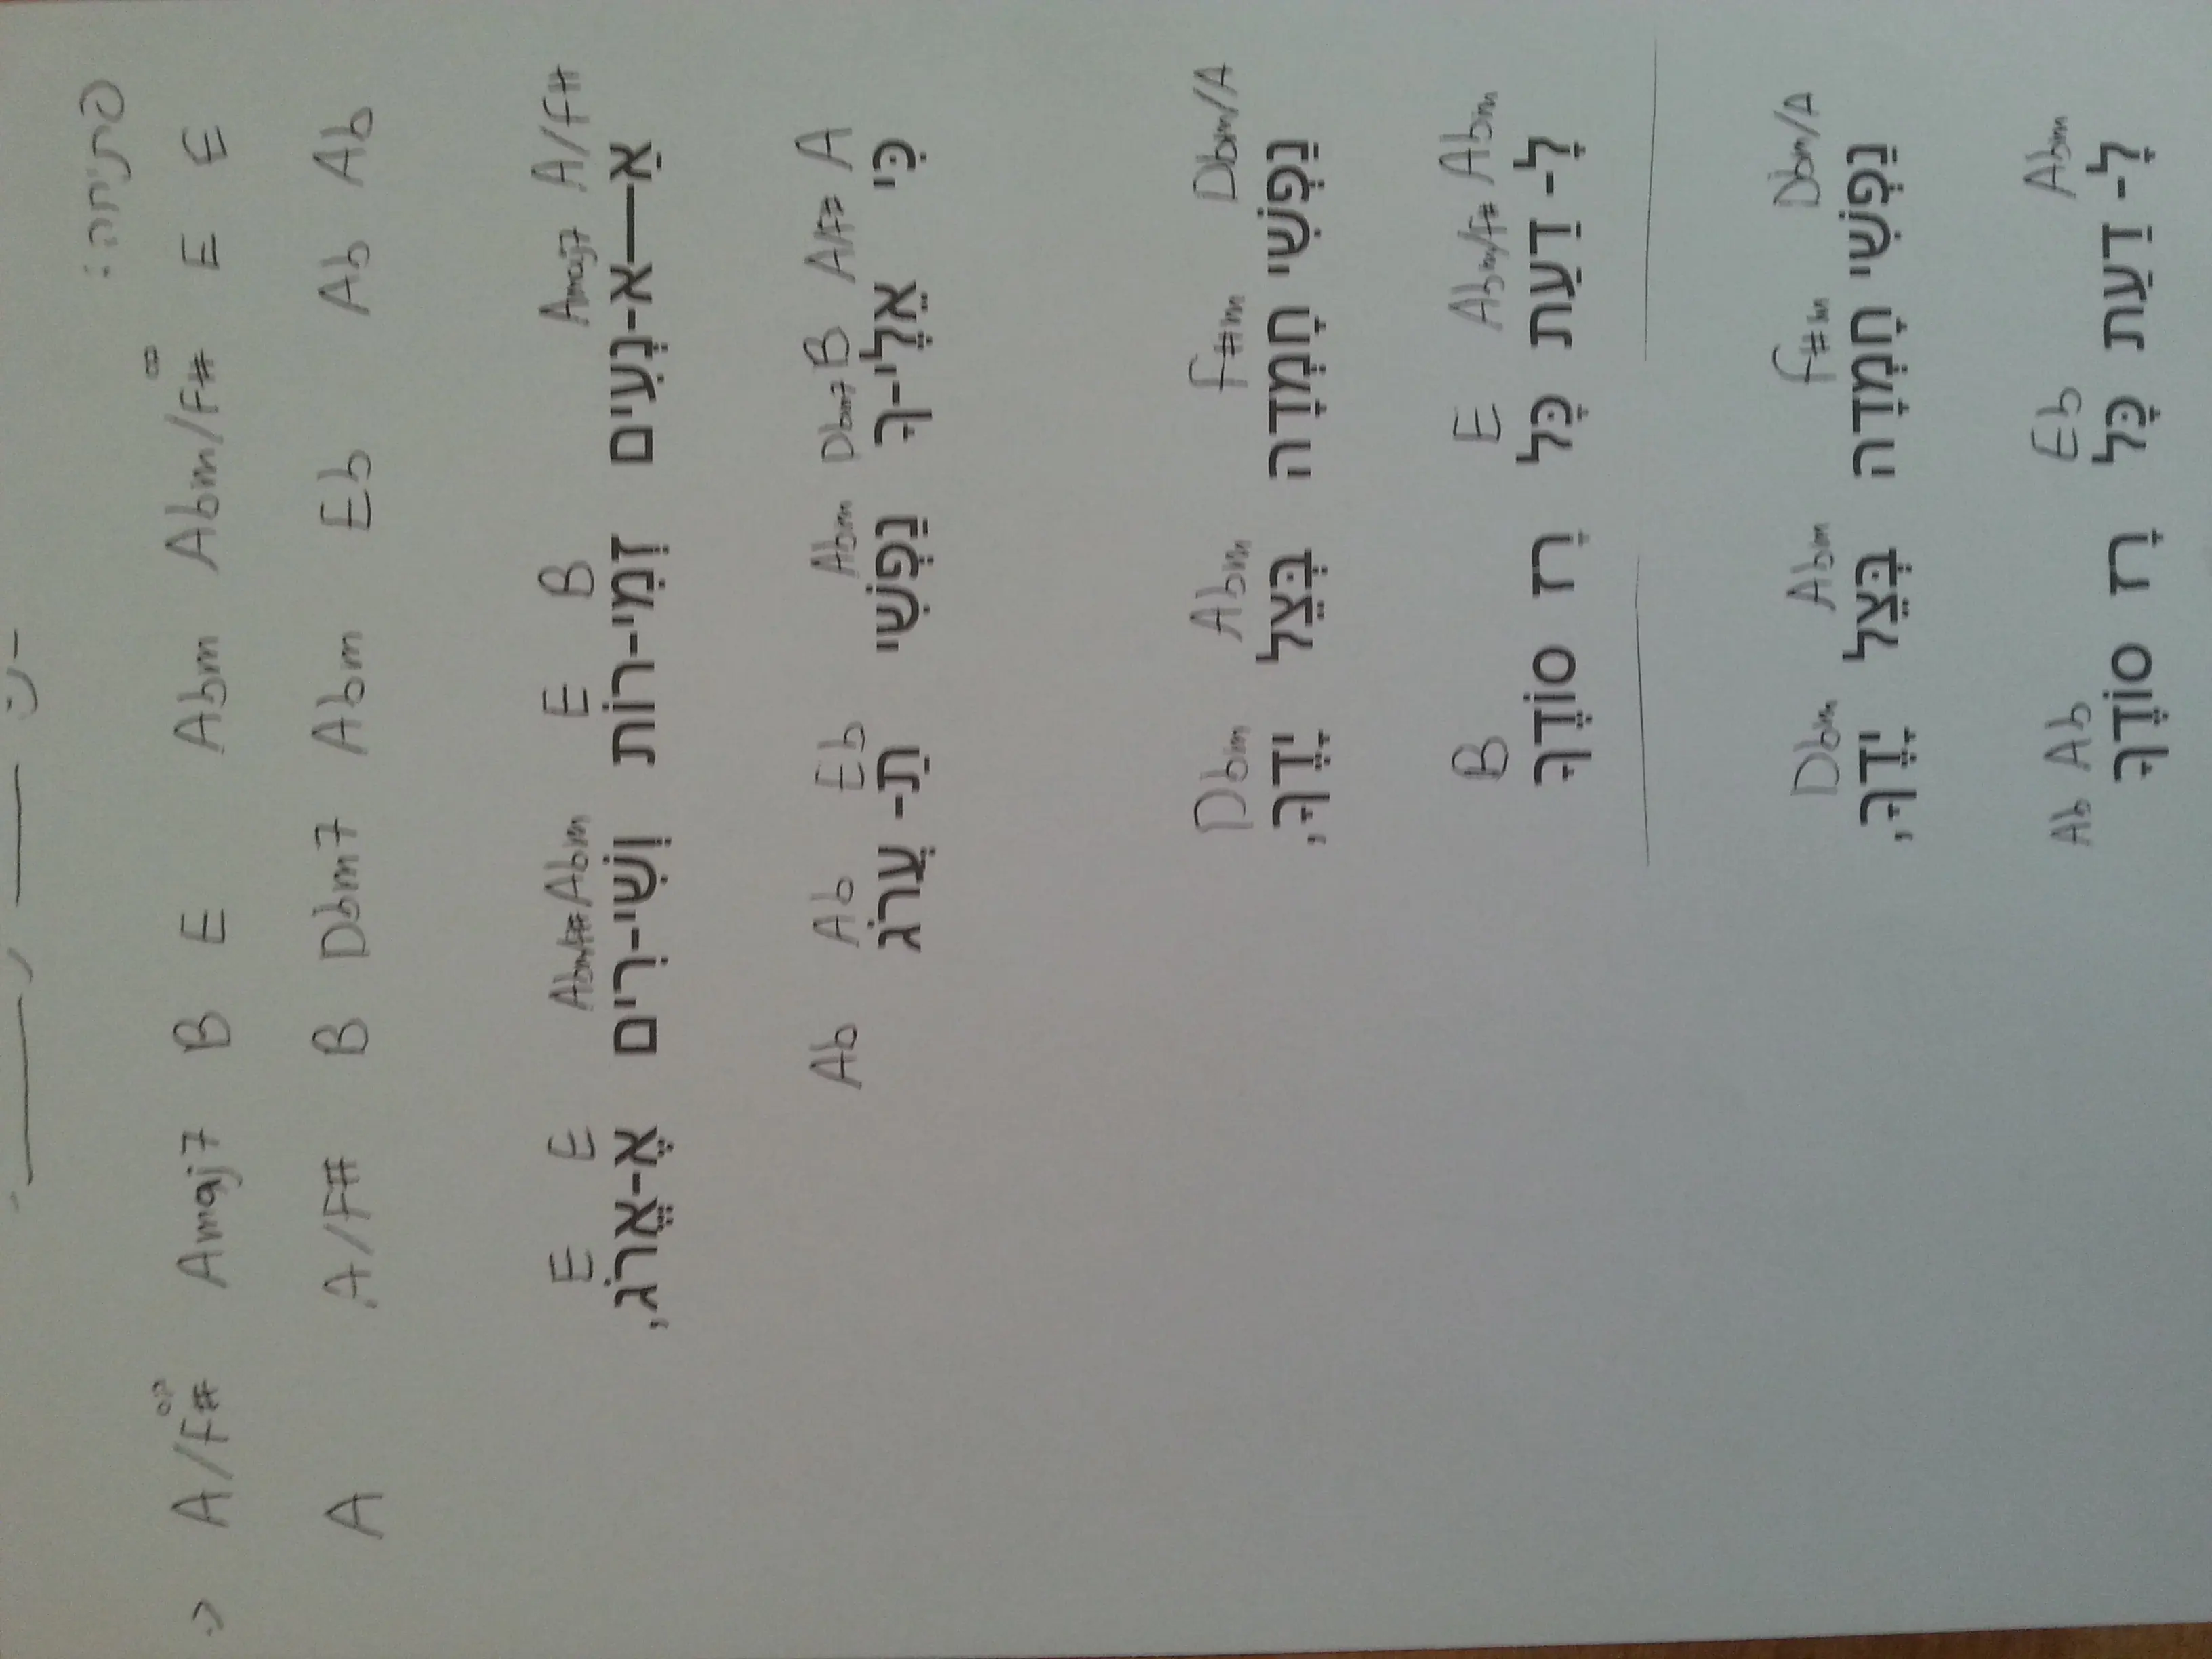 פתיחה:
A/F# Amaj7 B E Abm Abm/F# E E
A A/F# B Dbm7 Abm Eb Ab Ab
E E Abm/F# Abm E B Amaj7 A/F#
אַ——א-נְעִים זְמִי-רוֹת וְשִׁי-רִים אֶ-אֱרֹג,
Ab Ab Eb Abm Dbm7 B A/F# A
כִּי אֵלֶי-ךָ נַפְשִׁי תַ- עֲרֹג
Dbm Abm F#m Dbm/A
נַפְשִׁי חָמְדָה בְּצֵל יָדֶךָ,
B E Abm/F# Abm
לָ- דַעַת כָּל רָז סוֹדֶךָ
Dbm Abm F#m Dbm/A
נַפְשִׁי חָמְדָה בְּצֵל יָדֶךָ,
Ab Ab Eb Abm
לָ- דַעַת כָּל רָז סוֹדֶךָ